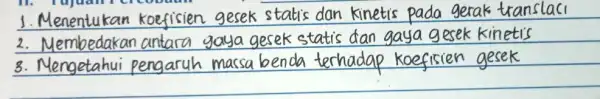 1. Menentukan koefisien gesek statis dan kinetis pada gerak translasi
2. Membedakan antara gaya gesek statis dan gaya gesek kinetis
3. Mengetahui pengaruh massa benda terhadap koefisien gesek